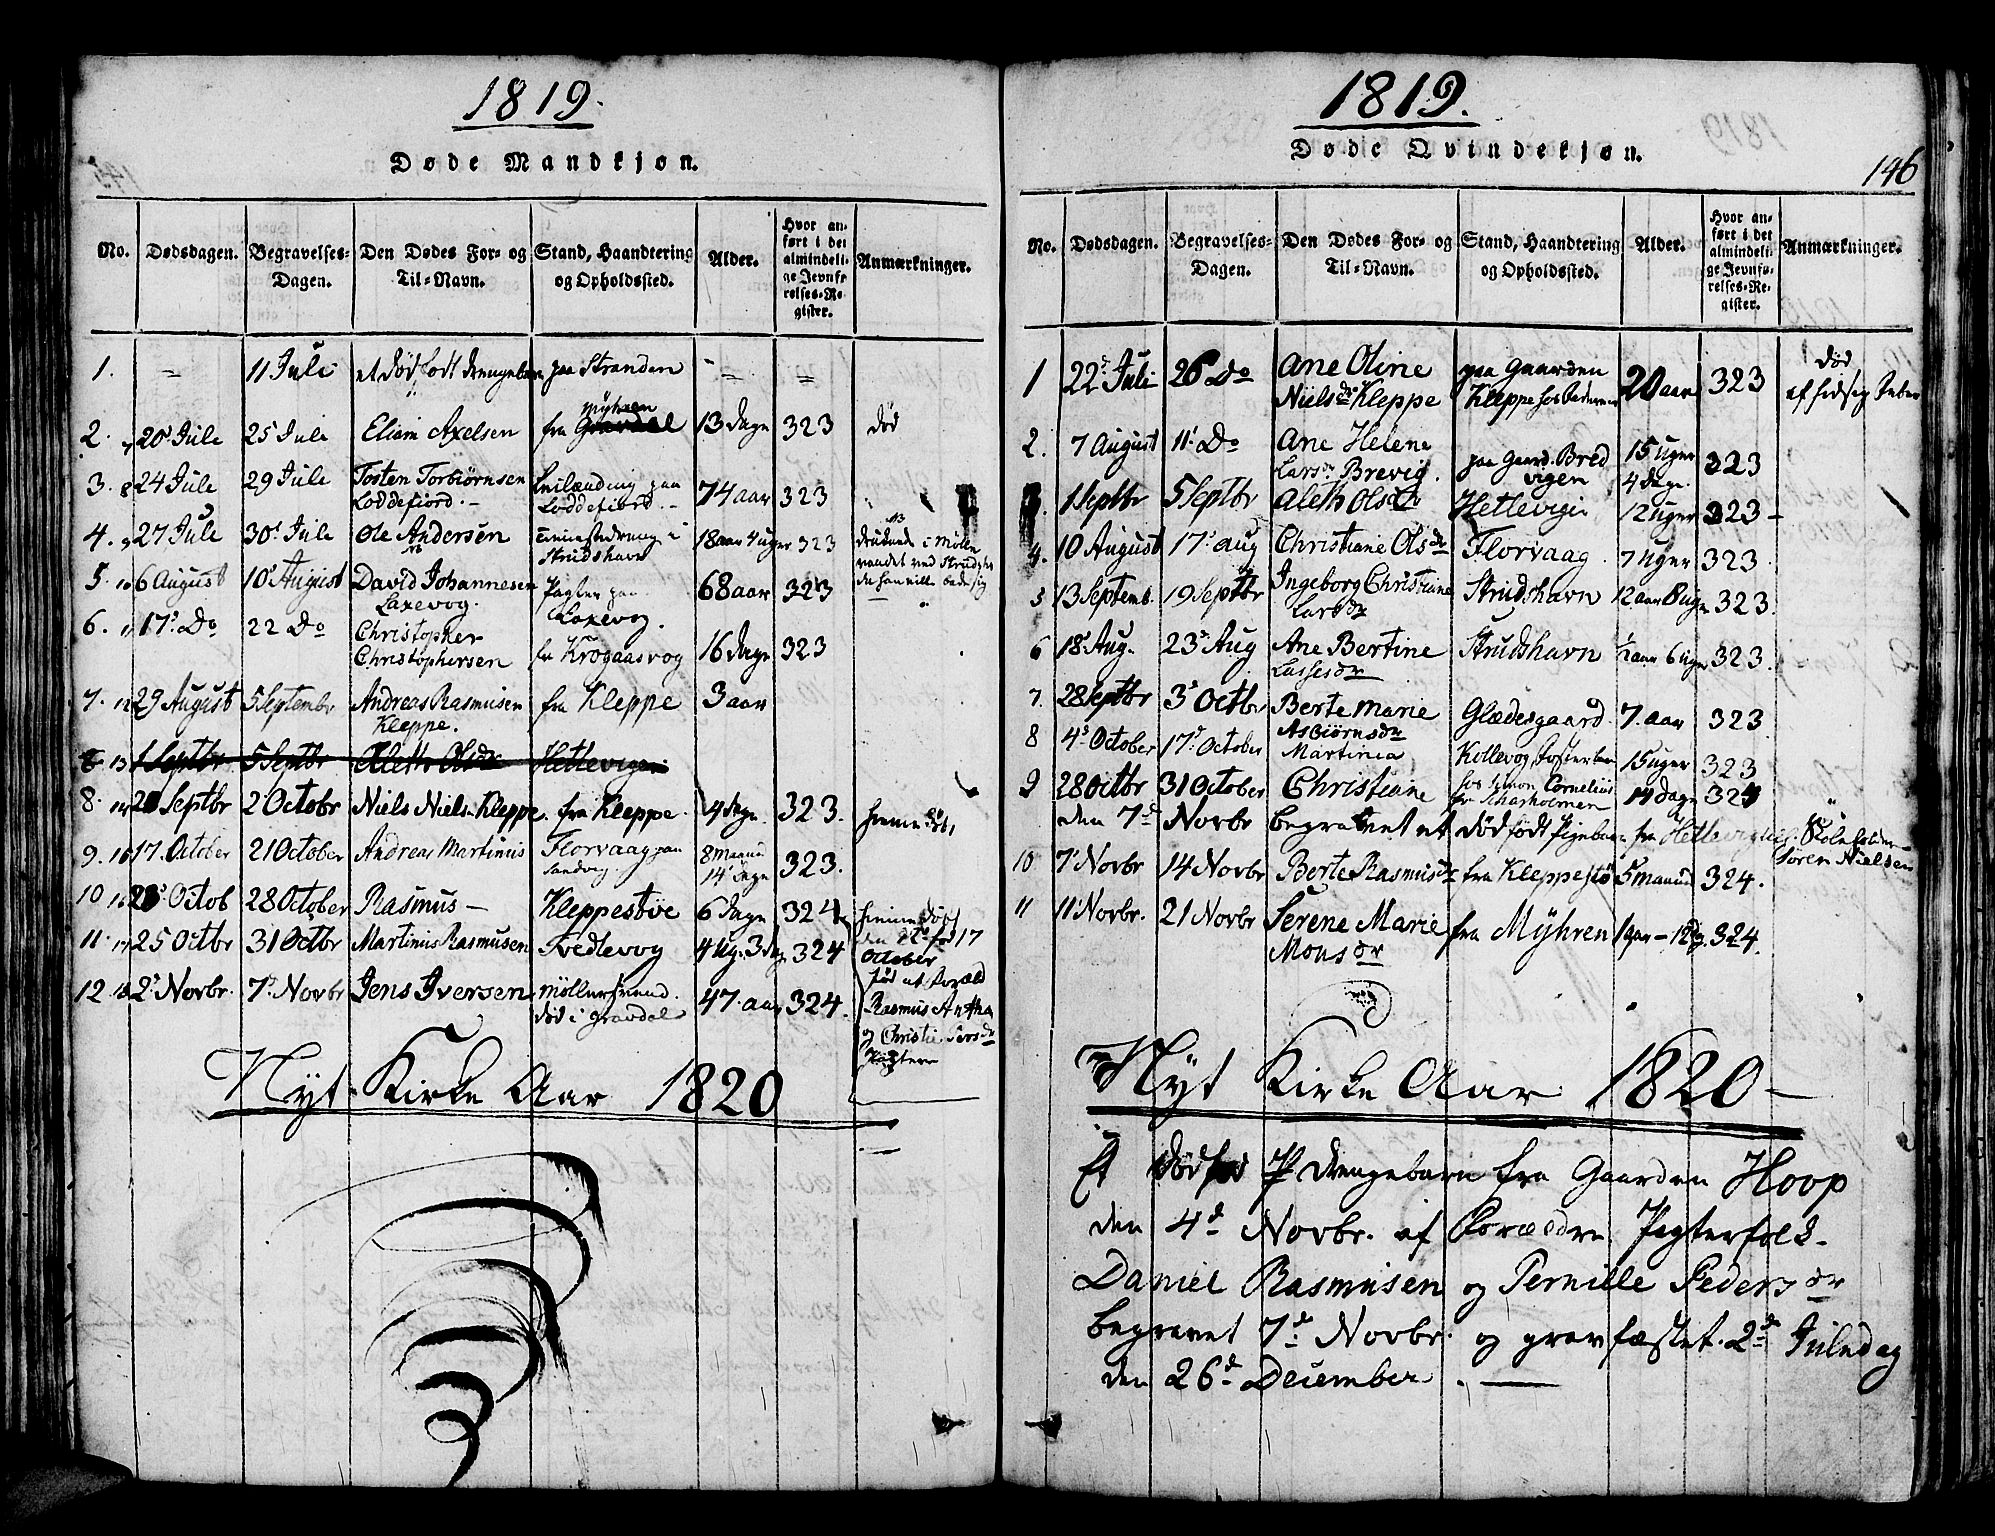 1819.
Døde Mandkjøn.
No. Dødsdagen. Begravelses-Dagen. Den Dødes For- og Til-Navn. Stand, Haandtering og Opholdssted. Alder. Hvor anført i det almindelige Jevnførelses-Register. Anmærkninger.
1. = 11 Juli et dødfødt drengebarn paa Stranden = =
2. 7 20 Jule 25 Juli Eliam Axelsen fra Gravdal Myhren 13 dage 323 død
3. 8 24 Jule 29 Jule Tosten Torbiørnsen
Loddefiord. paa Loddefiord. 74 aar 323
4. 9 27 Jule 30 Jule Ole Andersen i
Strudshavn 18 aar 4 uger 323
5. 10 6 August 10 August David Johannesen
Laxevog. Pagter paa Laxevog. 68 aar 323
6. 11 17 Do 22 Do Christopher
Christophersen fra Krogaasvog 16 dage 323
7. 12 29 August 5 Septembr Andreas Rasmusen
Kleppe. fra Kleppe 3 aar
8 13 1 Septbr 5 Septbr Aleth Olsdr Hettevigen
8. 14 Septbr 2 Octobr Niels Niels. Kleppe. fra Kleppe. 4 dage. 323. hiemedøbt
9. 17. October 21 October Andreas Martinus Florvaag paa
8 Maaned 14 dage 323.
10 Octob 28 October Rasmus — Kleppestøe 6 dage 324
11. 17 25 Octbr 31 Octbr Martinus Rasmusen Fredlevog 4 Ug. 3 dage 324
12. 18 2 Novbr. 7 Novbr Jens Iversen Møllersvend.
død i Gravdal 47. aar 324.
hiemedøbt
17
October
Rasmus
og Christi
Nyt Kirke Aar 1820
1819.
Døde Qvindekjøn.
146
No. Dødsdagen. Begravelses-Dagen. Den Dødes For- og Til-Navn. Stand, Haandtering og Opholdssted. Alder. Hvor anført i det almindelige Jevnførelses-Register. Anmærkninger.
1 22 Juli 26 Do Ane Oline
Nielsdr Kleppe paa Gaarden
Kleppe hos Faderen 20 aar 323 død
af hidsig Feber
2. 7 August 11 Do Ane Helene
Larsdr Brevig. paa Gaard. Bredvigen 15 uger
4 dage. 323
3. 1 Septbr 5 Septbr Aleth Olsdr Hettevigen 12 uger 323 -
4. 10 August 17 Aug Christiane Olsdr Florvaag 7 uger 323.
5 13 Septemb. 19 Septbr Ingeborg Christiane
Larsdr Strudshavn 12 aar 8 uger 323.
6 18 Aug. 23 Aug Ane Bertine
Lassesdr Strudshavn 1/2 aar 6 uger 323.
7. 28 Septbr 3 Octbr Berte Marie
Asbiørnsdr Glædesgaard. 7. aar 323.
8 4 October 17 October Martinia Kollevog, Fosterbarn
hos Simon Cornelius 15 uger 323
9 28 Octbr 31 October Christiane fra Skarholmen 14 dage 324
den 7d Novbr begravet et dødfødt Pigebarn fra Hettevigen Skoleholder
Søren Nielsen
10 7 Novbr 14 Novbr Berte Rasmusdr fra Kleppestø 5 maaned 324.
11 11 Novbr. 21 Novbr Serene Marie
Monsdr fra Myhren 1 aar - 324.
Nyt Kirke Aar 1820 —
Et død drengebarn fra Gaarden Hoop
den 4d Novbr. af Forældre Pagterfolk
Daniel Rasmusen og Pernille Pedersdr
begravet 7d Novbr. og gravfæstet. 2d Juledag
den 26d December. —